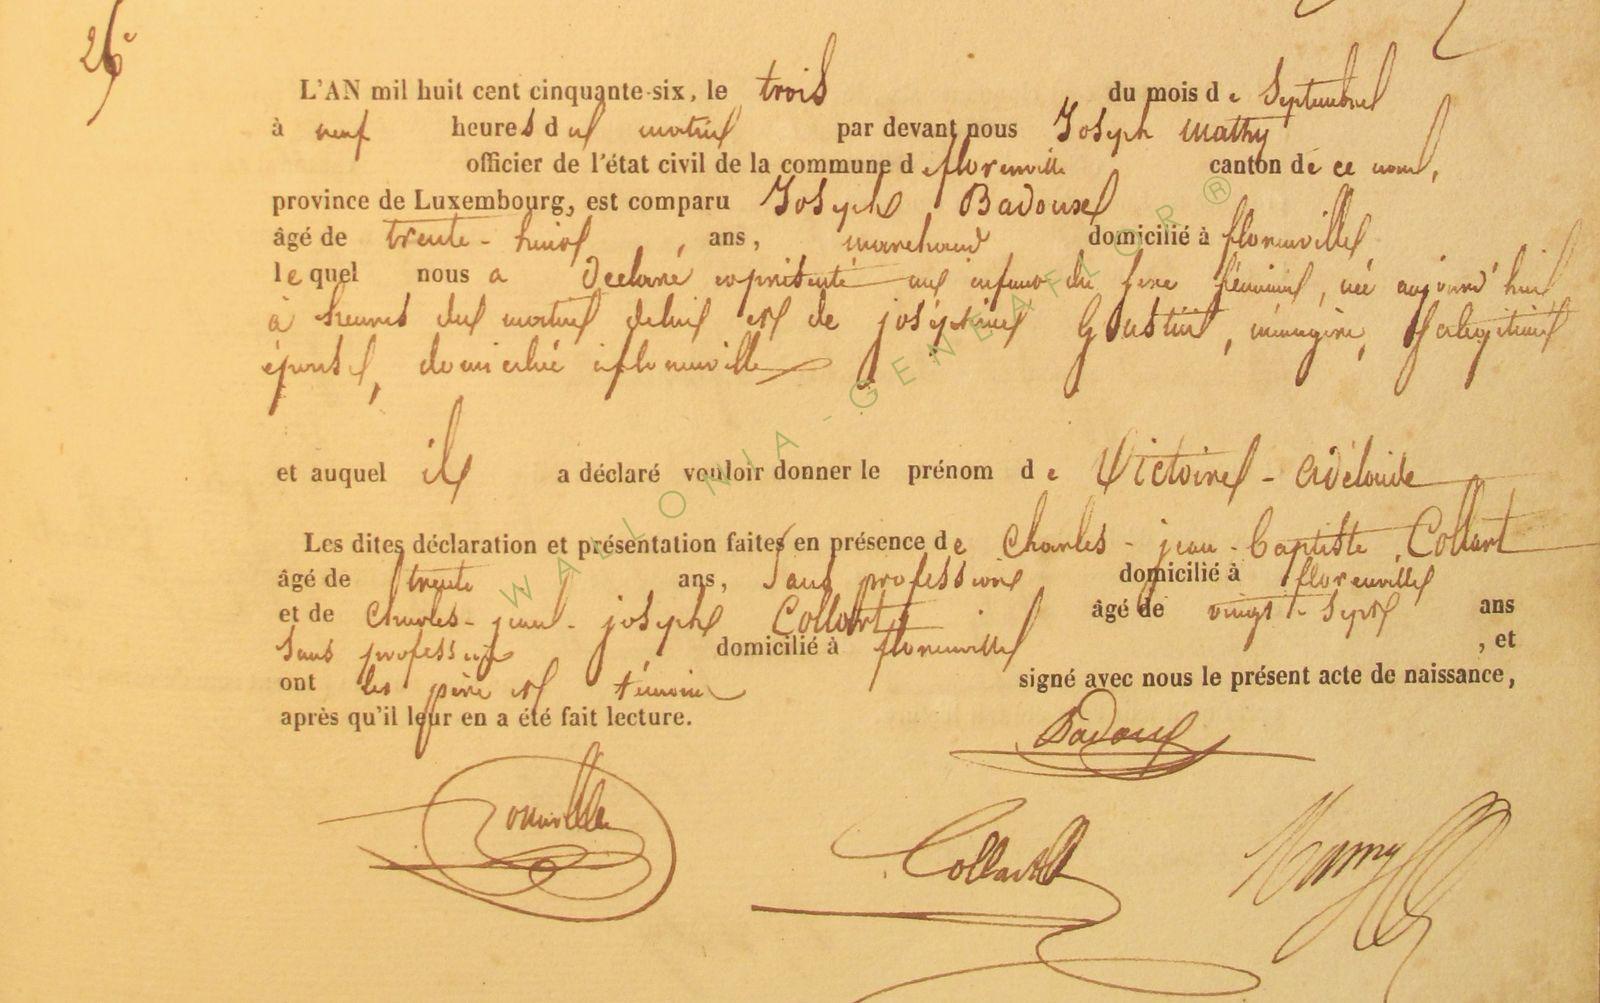 26e
L'AN mil huit cent cinquante-six, le trois du mois de Septembre
à neuf heures du matin par devant nous Joseph Mathy
officier de l'état civil de la commune de florenville canton de ce nom,
province de Luxembourg, est comparu Joseph Badoux
âgé de trente-huit, ans, marchand domicilié à florenville
lequel nous a déclaré et présenté un enfant du sexe féminin, née aujourd'hui
à heures du matin de lui et de joséphine Goustin, ménagère, Sa légitime
épouse, domiciliée à florenville
et auquel il a déclaré vouloir donner le prénom de Victoire-Adélaïde
Les dites déclaration et présentation faites en présence de Charles-jean-baptiste Collart
âgé de trente ans, Sans profession domicilié à florenville
et de Charles-jean-joseph Collart âgé de vingt-Sept ans
Sans profession domicilié à florenville, et
ont les père et témoins signé avec nous le présent acte de naissance,
après qu'il leur en a été fait lecture.
Badoux
Collart
WALLONIA-GENEAFLOR ®